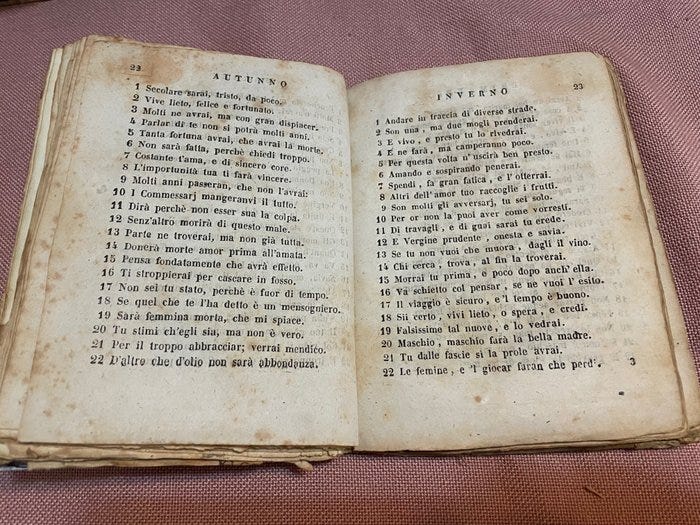 22
AUTUNNO
1 Secolare sarai, tristo, da poco.
2 Vive lieto, felice e fortunato.
3 Molti ne avrai, ma con gran dispiacer.
4 Parlar di te non si potrà molti anni.
5 Tanta fortuna avrai, che avrai la morte.
6 Non sarà fatta, perchè chiedi troppo.
7 Costante t'ama, e di sincero core.
8 L'importunità tua ti farà vincere.
9 Molti anni passeran, che non l'avrai:
10 I Commessarj mangeranvi il tutto.
11 Dirà perchè non esser sua la colpa.
12 Senz'altro morirà di questo male.
13 Parte ne troverai, ma non già tutta.
14 Donerà morte amor prima all'amata.
15 Pensa fondatamente che avrà effetto.
16 Ti stroppierai per cascare in fosso.
17 Non sei tu stato, perchè è fuor di tempo.
18 Se quel che te l'ha detto è un mensogniero.
19 Sarà femmina morta, che mi spiace.
20 Tu stimi ch'egli sia, ma non è vero.
21 Per il troppo abbracciar; verrai mendico.
22 D'altro che d'olio non sarà abbondanza.
INVERNO
23
1 Andare in traccia di diverse strade.
2 Son una, ma due mogli prenderai.
3 E vivo, e presto tu lo rivedrai.
4 E ne farà, ma camperanno poco.
5 Per questa volta n'uscirà ben presto.
6 Amando e sospirando penerai.
7 Spendi, fa gran fatica, e l'otterrai.
8 Altri dell'amor tuo raccoglie i frutti.
9 Son molti gli avversarj, tu sei solo.
10 Per or non la puoi aver come vorresti.
11 Di travagli, e di guai sarai tu erede.
12 E Vergine prudente, onesta e savia.
13 Se tu non vuoi che muora, dagli il vino.
14 Chi cerca, trova, al fin la troverai.
15 Morrai tu prima, e poco dopo anch'ella.
16 Va schietto col pensar, se ne vuoi l'esito.
17 Il viaggio è sicuro, e'l tempo è buono.
18 Sii certo, vivi lieto, o opera, e credi.
19 Falsissime tal nuove, e lo vedrai.
20 Maschio, maschio farà la bella madre.
21 Tu dalle fascie si la prole avrai.
22 Le femine, e 'l giocar faran che perdi.
3